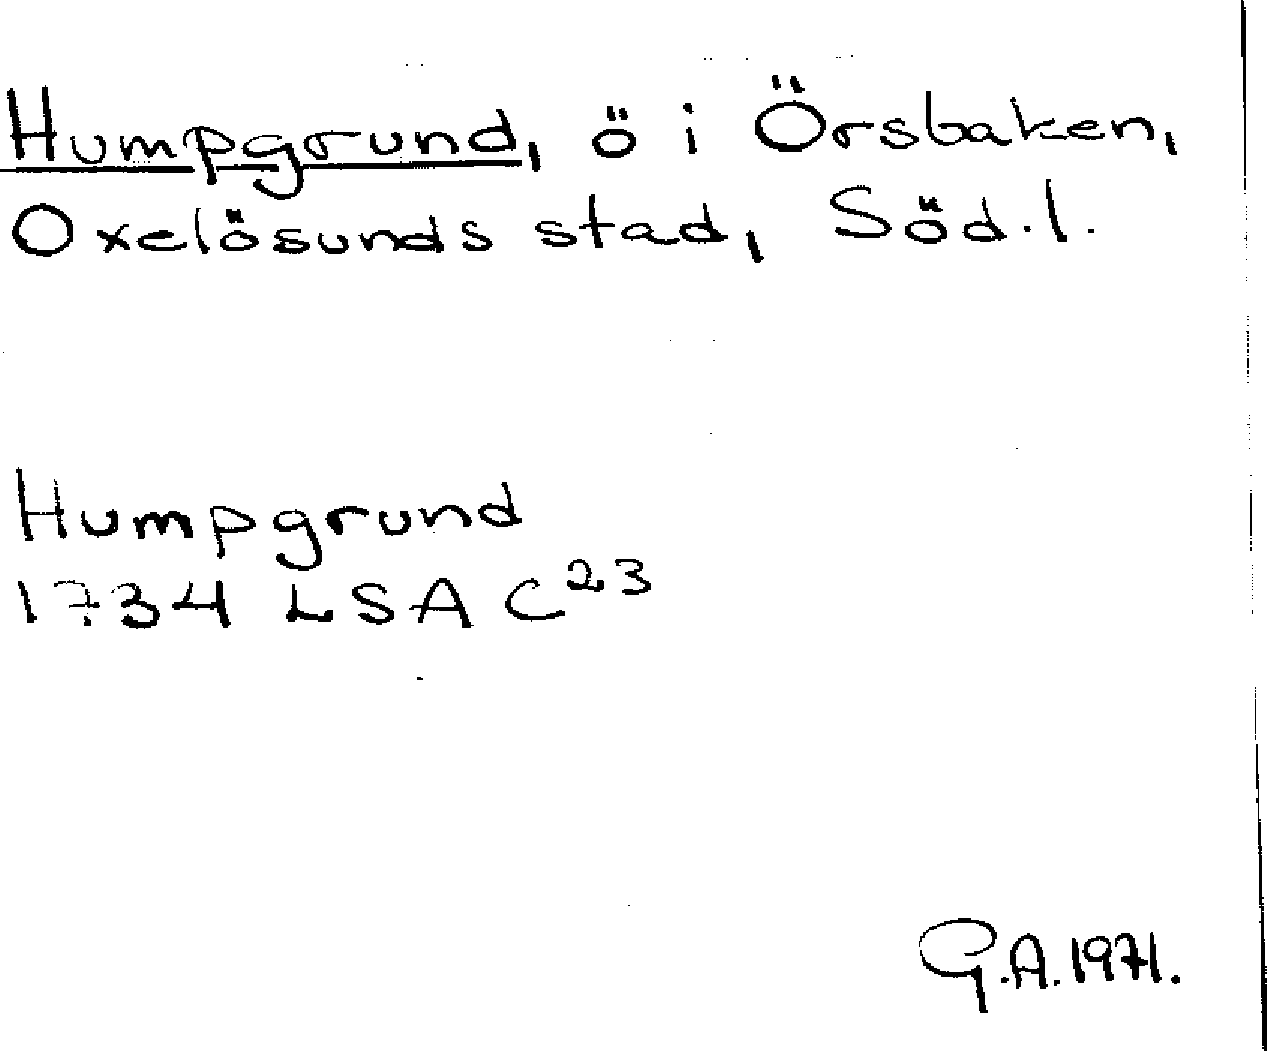 Humpgrund, ö i Örsbaken,
Oxelösunds stad, Söd.l.
Humpgrund
1734 LSA C²³
G.A. 1971.